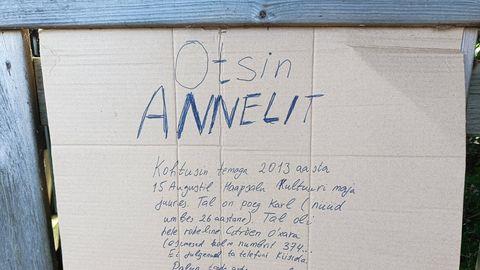 Otsin
ANNELIT
Kohtusin temaga 2013 aasta
15 Augustil Haapsalu Kultuuri maja
juures. Tal on poeg Karl (nüüd
umbes 26 aastane). Tal oli
hele roheline Citröen O'xara
(esimesed kolm numbrit 374...
Ei julgenud ta telefoni küsida.
Palun